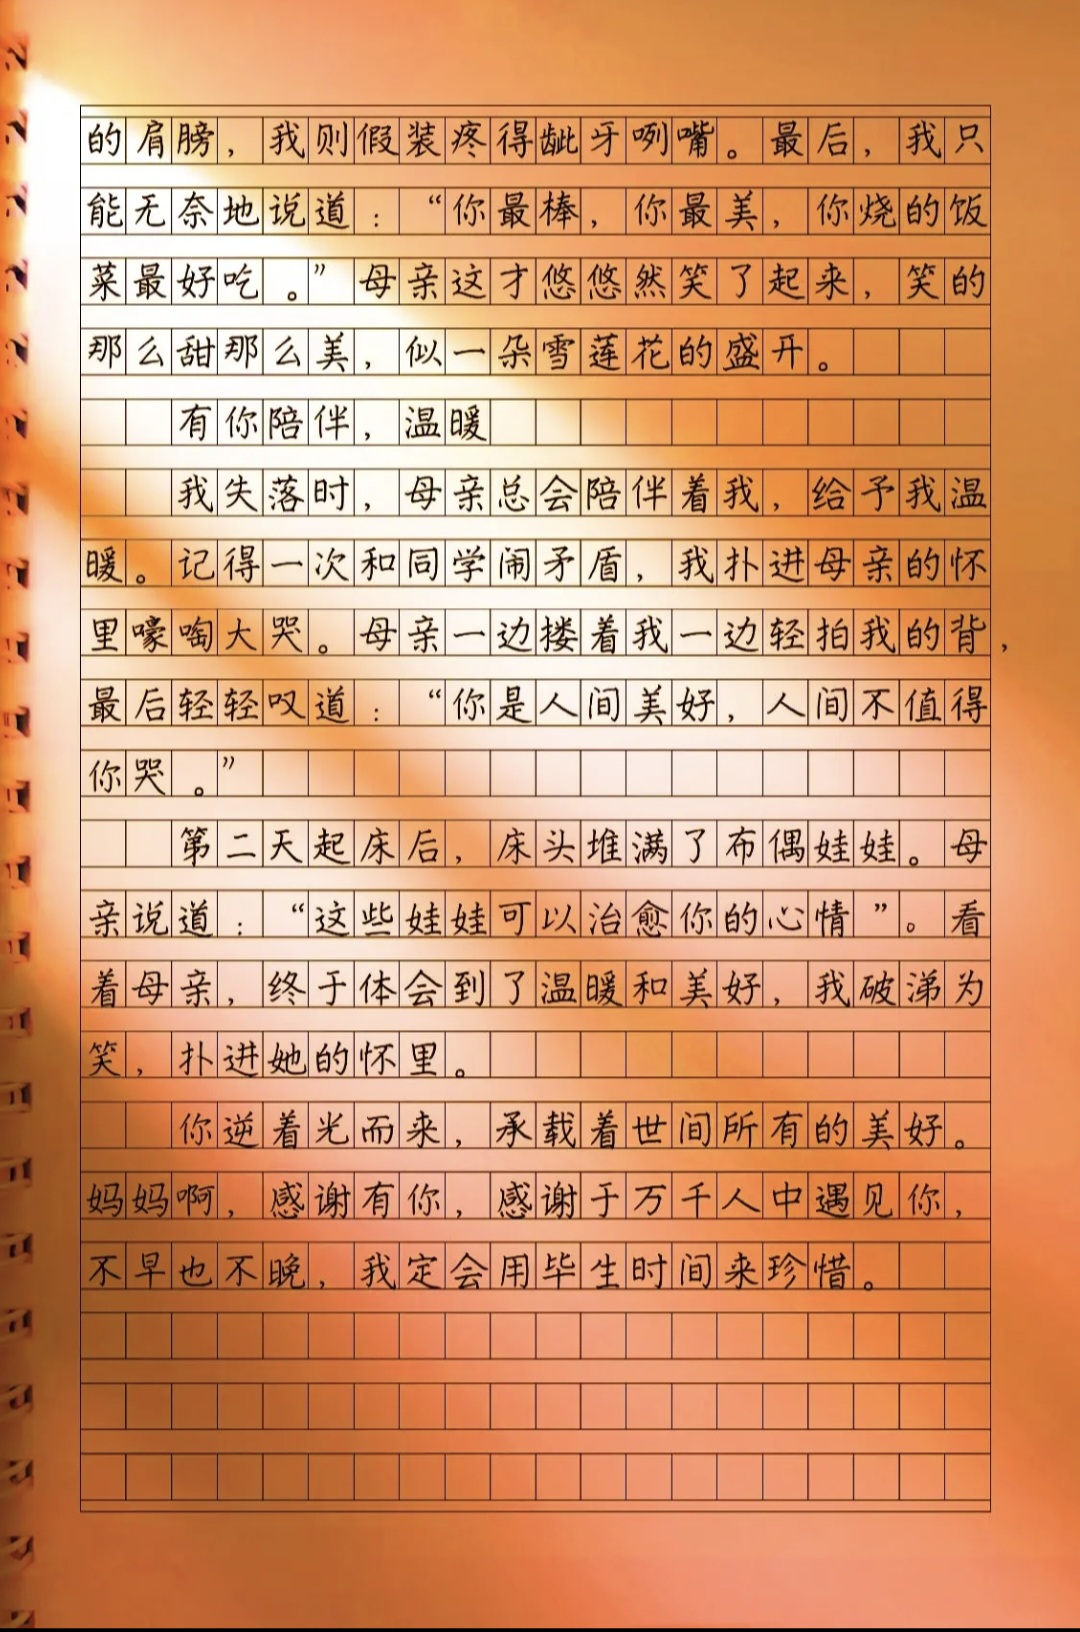 的肩膀，我则假装疼得龇牙咧嘴。最后，我只
能无奈地说道：“你最棒，你最美，你烧的饭
菜最好吃。”母亲这才悠悠然笑了起来，笑的
那么甜那么美，似一朵雪莲花的盛开。
有你陪伴，温暖
我失落时，母亲总会陪伴着我，给予我温
暖。记得一次和同学闹矛盾，我扑进母亲的怀
里嚎啕大哭。母亲一边搂着我一边轻拍我的背，
最后轻轻叹道：“你是人间美好，人间不值得
你哭。”
第二天起床后，床头堆满了布偶娃娃。母
亲说道：“这些娃娃可以治愈你的心情”。看
着母亲，终于体会到了温暖和美好，我破涕为
笑，扑进她的怀里。
你逆着光而来，承载着世间所有的美好。
妈妈啊，感谢有你，感谢于万千人中遇见你，
不早也不晚，我定会用毕生时间来珍惜。